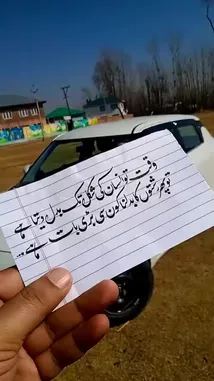 وقت تو انسان کی شکل تک بدل دیتا ہے
تو پھر رشتوں کا بدلنا کون سی بڑی بات ہے...